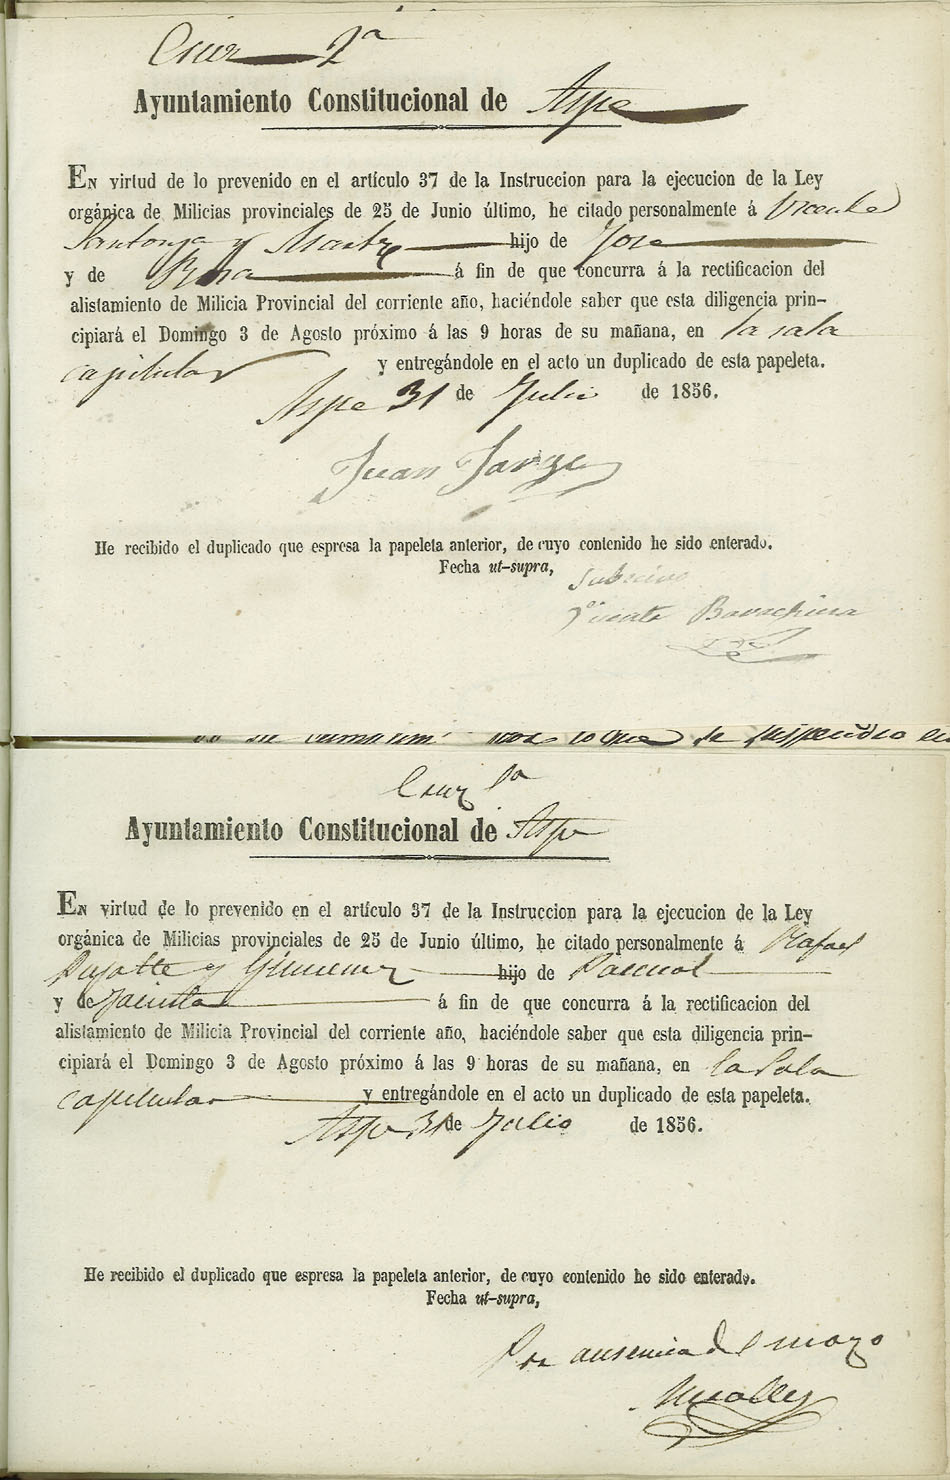 Cruz 2ª
Ayuntamiento Constitucional de Aspe
EN virtud de lo prevenido en el artículo 37 de la Instruccion para la ejecucion de la Ley
orgánica de Milicias provinciales de 25 de Junio último, he citado personalmente á Vicente
Santonja y hijo de Jose
y de Rosa á fin de que concurra á la rectificacion del
alistamiento de Milicia Provincial del corriente año, haciéndole saber que esta diligencia prin-
cipiará el Domingo 3 de Agosto próximo á las 9 horas de su mañana, en la sala
capitular y entregándole en el acto un duplicado de esta papeleta.
Aspe 31 de Julio de 1856.
Juan
He recibido el duplicado que espresa la papeleta anterior, de cuyo contenido he sido enterado.
Fecha ut-supra,
Vicente
se suspendio
Cruz 1ª
Ayuntamiento Constitucional de Aspe
EN virtud de lo prevenido en el artículo 37 de la Instruccion para la ejecucion de la Ley
orgánica de Milicias provinciales de 25 de Junio último, he citado personalmente á Rafael
y Gimenez hijo de Pascual
y de Jacinta á fin de que concurra á la rectificacion del
alistamiento de Milicia Provincial del corriente año, haciéndole saber que esta diligencia prin-
cipiará el Domingo 3 de Agosto próximo á las 9 horas de su mañana, en la Sala
capitular y entregándole en el acto un duplicado de esta papeleta.
Aspe 31 de Julio de 1856.
He recibido el duplicado que espresa la papeleta anterior, de cuyo contenido he sido enterado.
Fecha ut-supra,
Por ausencia del mozo